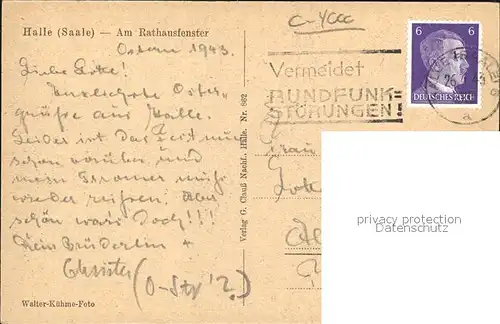 Halle (Saale) — Am Rathausfenster
Ostern 1943.
Liebe Lotte!
Herzlichste Oster-
grüße aus Halle.
Leider ist das Fest nun
schon vorüber, und
mein muß
wieder reisen. Aber
schön war's doch!!!
Dein Brüderlein +
Christer (O-Str 12.)
Walter-Kühme-Foto
Verlag G. Clauß Nachf. Halle. Nr. 862
C-4000
Vermeidet
RUNDFUNK=
STÖRUNGEN!
6 6
DEUTSCHES REICH
26.
43
a
Frau
privacy protection
Datenschutz